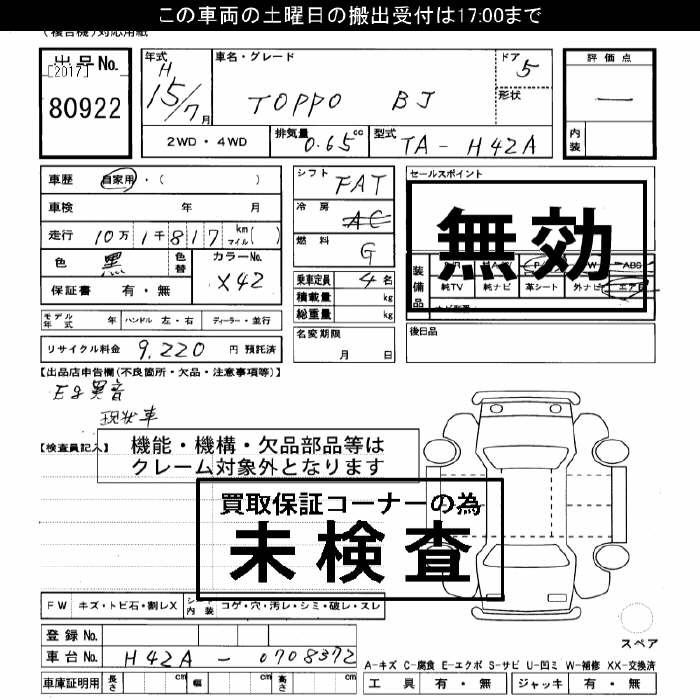 この車両の土曜日の搬出受付は17:00まで
(複合機)対応用紙
出品No.
[2017]
80922
年式 H 15/7 月
車名・グレード TOPPO BJ
ドア 5
形状
評価点
—
内装
2WD・4WD
排気量 0.65 cc
型式 TA-H42A
車歴 自家用・( )
車検 年 月
走行 10万1千817 km マイル( )
色 黒 色替
カラーNo. X42
保証書 有・無
シフト FAT
冷房 AC
燃料 G
乗車定員 4 名
積載量 kg
総重量 kg
セールスポイント
無効
装備品
純TV 純ナビ 革シート 外ナビ エアB
ABS
モデル年式 年 ハンドル 左・右 ディーラー・並行
名変期限 月 日
後日品
リサイクル料金 9,220 円 預託済
【出品店申告欄(不良箇所・欠品・注意事項等)】
Eg異音
現状車
【検査員記入】
機能・機構・欠品部品等は
クレーム対象外となります
買取保証コーナーの為
未検査
FW キズ・トビ石・割レX シート内装 コゲ・穴・汚レ・シミ・破レ・スレ
登録No.
車台No. H42A-0708372
車庫証明用 長さ cm 幅 cm 高さ cm
スペア
A-キズ C-腐食 E-エクボ S-サビ U-凹ミ W-補修 XX-交換済
工具 有・無 ジャッキ 有・無